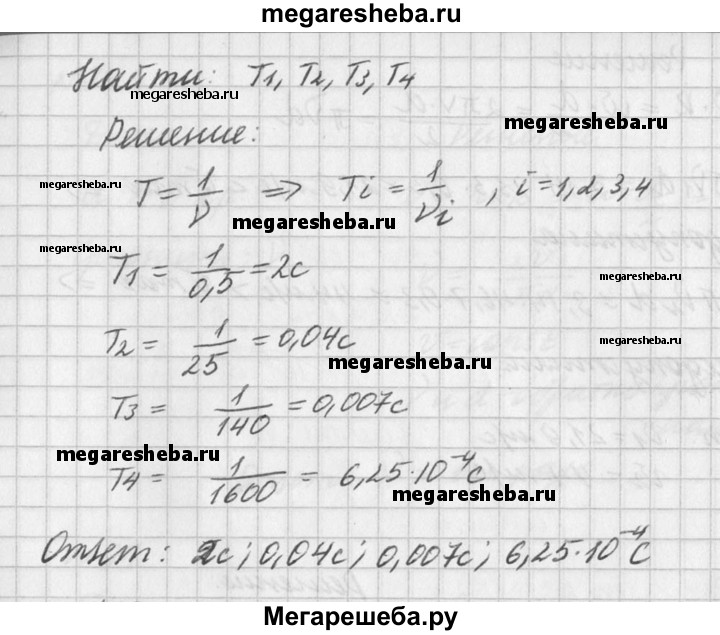 megaresheba.ru
Найти: T1, T2, T3, T4
megaresheba.ru
megaresheba.ru
Решение:
T = 1/ν => Ti = 1/νi , i = 1, 2, 3, 4
megaresheba.ru
megaresheba.ru
T1 = 1/0,5 = 2с
megaresheba.ru
T2 = 1/25 = 0,04с
megaresheba.ru
T3 = 1/140 = 0,007с
megaresheba.ru
T4 = 1/1600 = 6,25·10⁻⁴с
megaresheba.ru
Ответ: 2с; 0,04с; 0,007с; 6,25·10⁻⁴с
Мегарешеба.ру